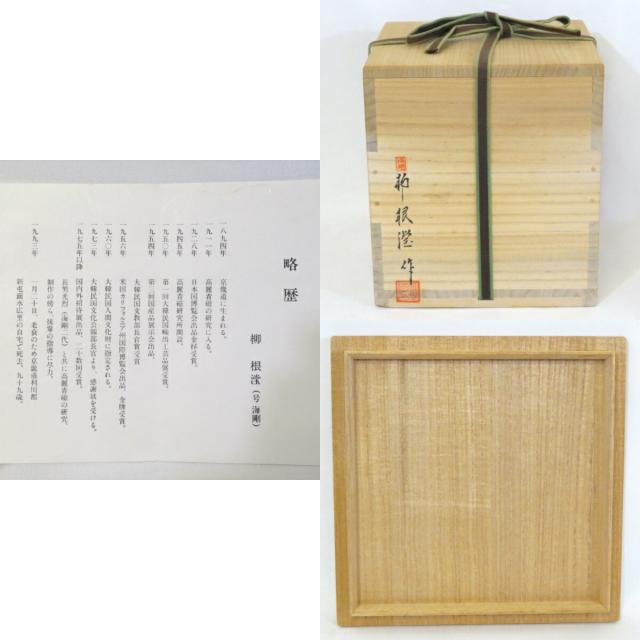 略歴
柳根瀅(号海剛)
一八九四年 京畿道に生まれる。
一九一一年 高麗青磁の研究に入る。
一九二八年 日本国博覧会出品金杯受賞。
一九四五年 高麗青磁研究所開設。
一九五〇年 第一回大韓民国輸出工芸品展受賞。
一九五四年 第三回国産品展示会出品、
大韓民国文教部長官賞受賞
一九五六年 米国カリフォルニア州国際博覧会出品、金牌受賞。
一九六〇年 大韓民国人間文化財に指定される。
一九七三年 大韓民国文化公報部長官より、感謝状を受ける。
一九七五年以降 国内外招待展出品、二十数回受賞。
長男光烈(海剛二代)と共に高麗青磁の研究、
制作の傍ら、後輩の指導に尽力。
一九九三年 一月二十日、老衰のため京畿道利川郡
新屯面水広里の自宅で死去、九十九歳。
柳根瀅作